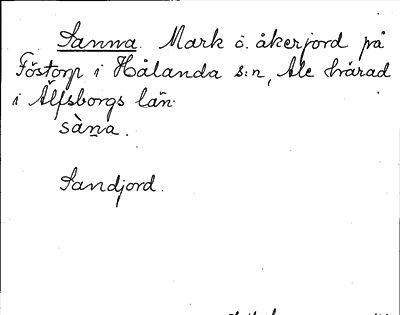 Sanna. Mark o. åkerjord på
Föstorp i Hålanda s:n, Ale härad
i Älfsborgs län.
sàna.
Sandjord.